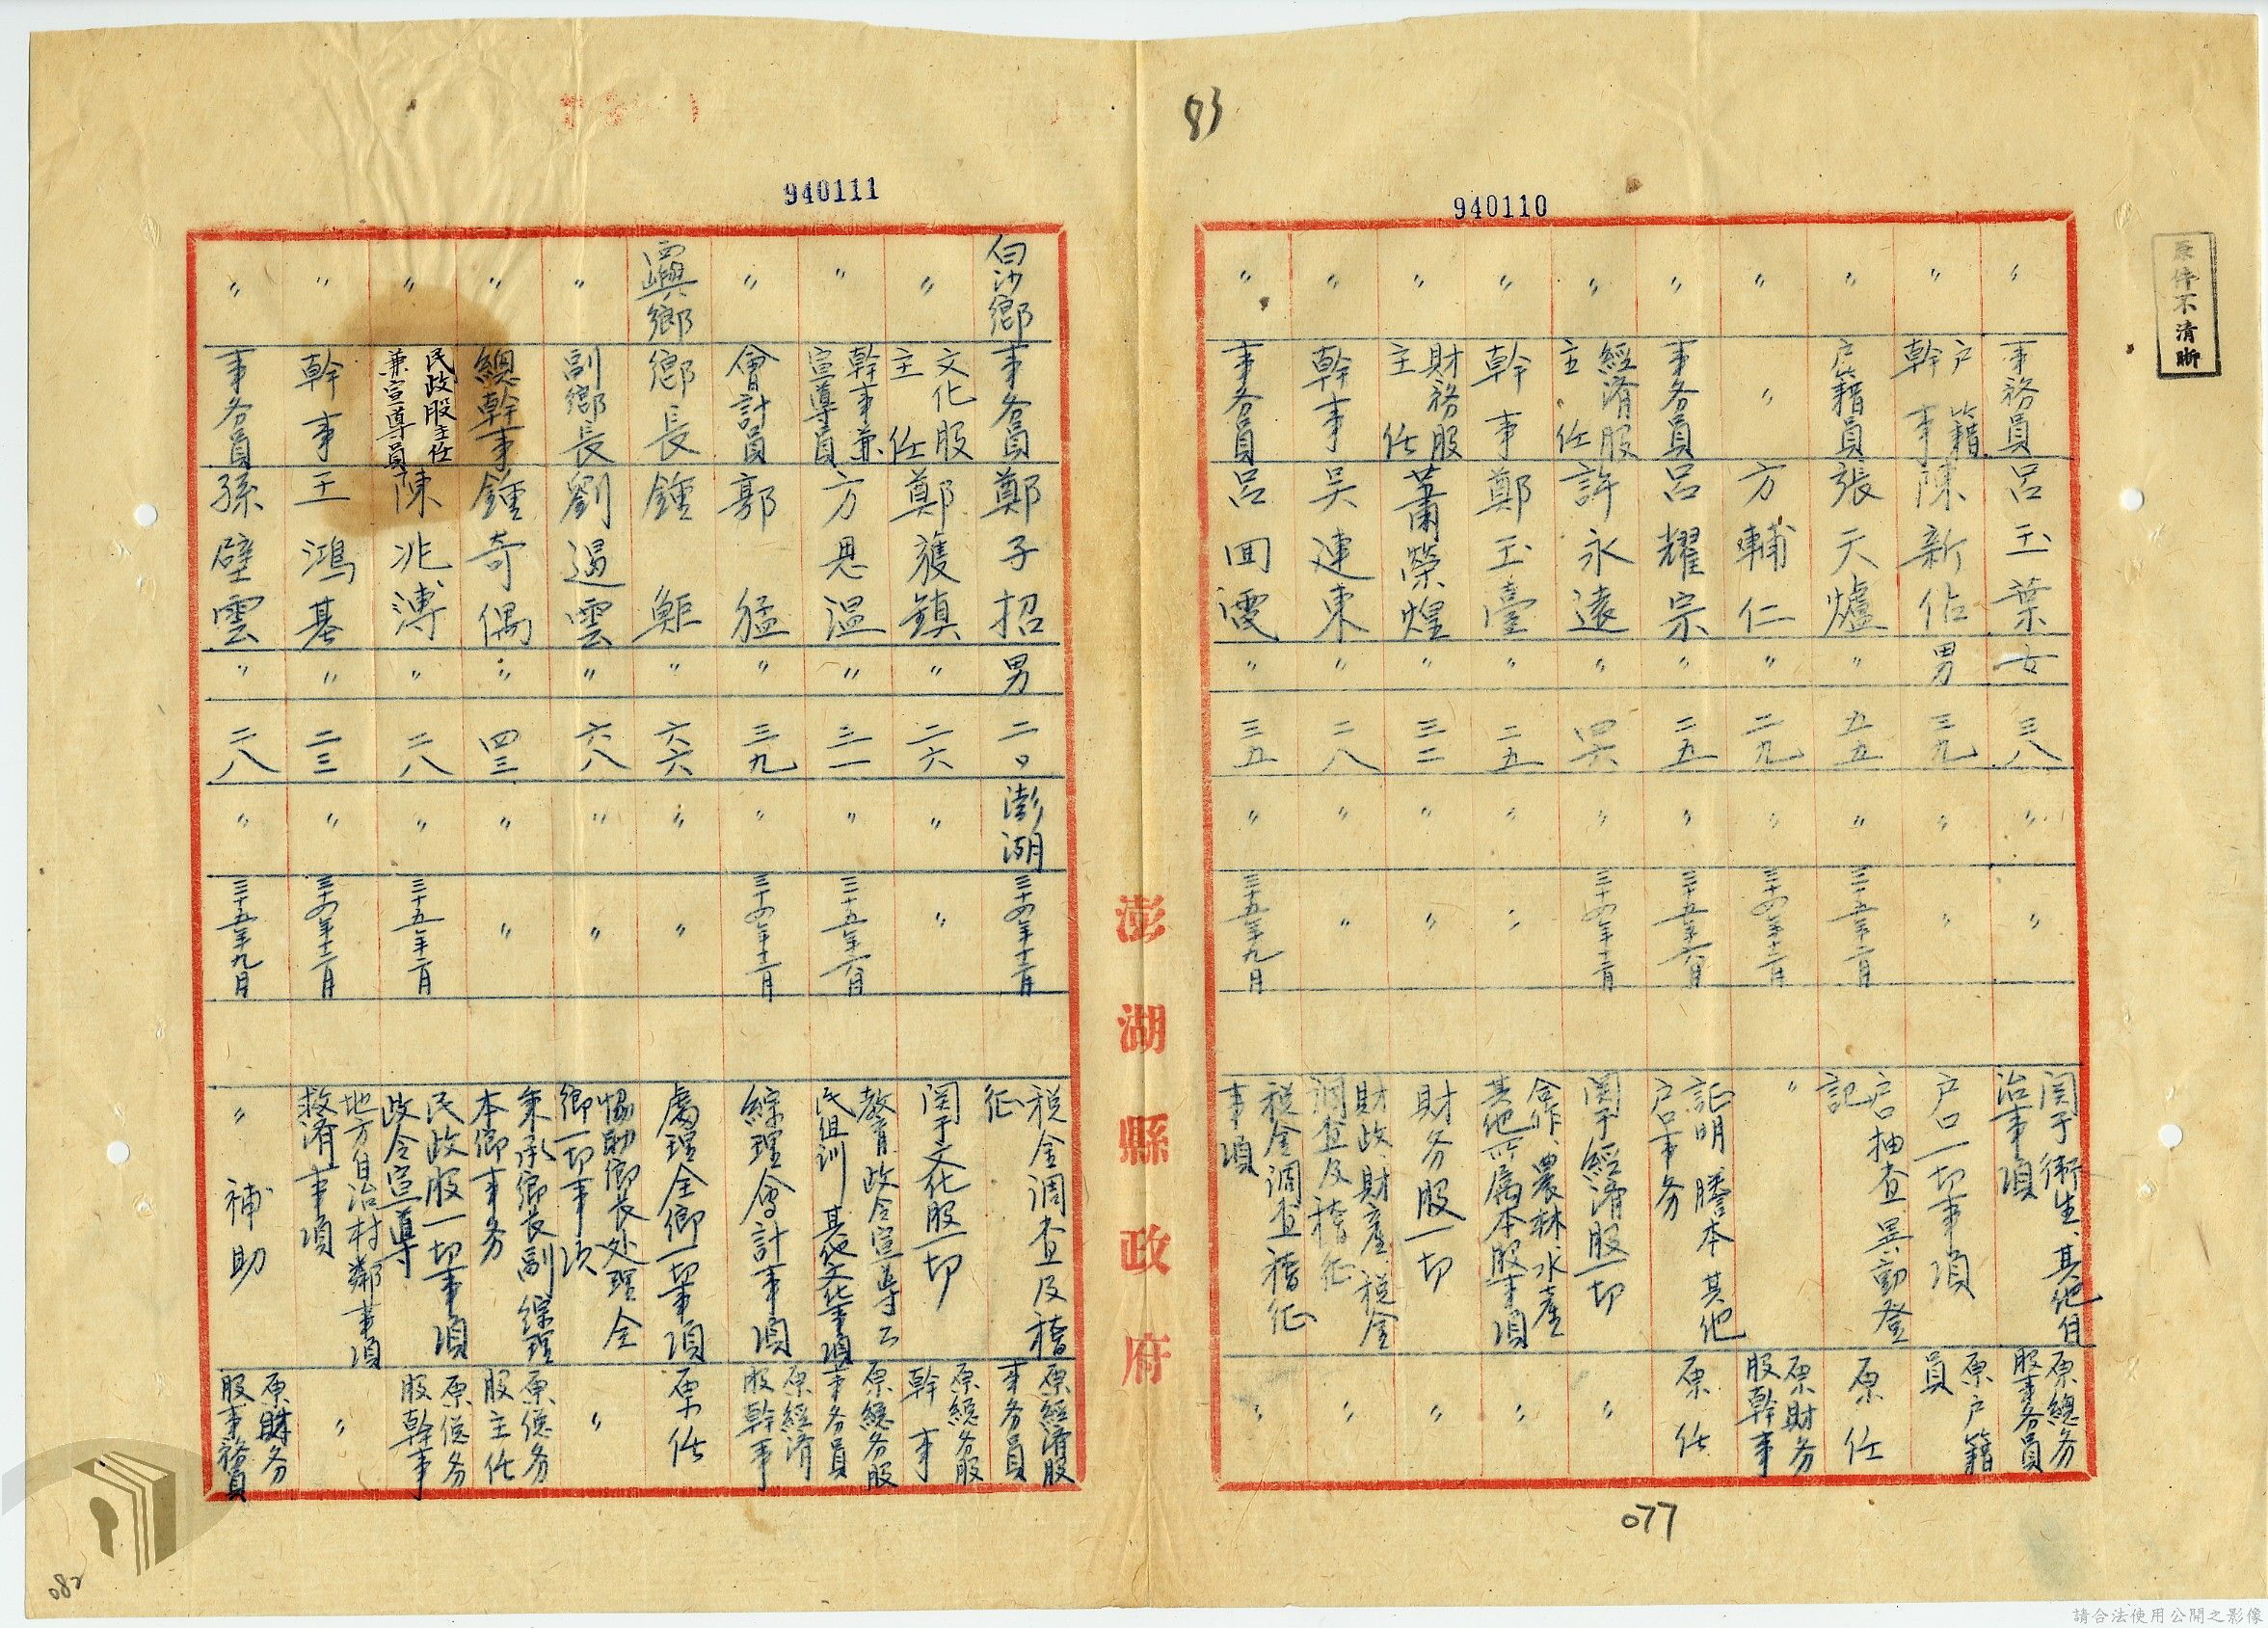 83
940110
原件不清晰
〃 事務員 呂玉葉 女 三八 〃 〃 関于衛生、其他自治事項 原總务股事务員
〃 户籍幹事 陳新佑 男 三九 〃 〃 户口一切事項 原户籍員
〃 户籍員 張天爐 〃 五五 〃 三十五年二月 户口抽查異動登記 原任
〃 〃 方輔仁 〃 二九 〃 三十四年十二月 〃 原財务股幹事
〃 事务員 呂耀宗 〃 二五 〃 三十五年六月 証明謄本其他户口事务 原任
〃 經濟股主任 許永遠 〃 四六 〃 三十四年十二月 関于經濟股一切 〃
〃 幹事 鄭玉臺 〃 二五 〃 〃 合作、農林、水產其他所属本股事項 〃
〃 財務股主任 蕭榮煌 〃 三二 〃 〃 財务股一切 〃
〃 幹事 吴連東 〃 二八 〃 〃 財政、財產、税金調查及稽征 〃
〃 事务員 呂回 〃 三五 〃 三十五年九月 税金調查稽征事項 〃
077
澎湖縣政府
940111
白沙鄉 事务員 鄭子招 男 二〇 澎湖 三十四年十二月 税金調查及稽征 原經濟股事务員
〃 文化股主任 鄭獲鎮 〃 二六 〃 〃 関于文化股一切 原總务股幹事
〃 幹事兼宣導員 方恩温 〃 三一 〃 三十五年六月 教育政令宣導公民组训其他文化事項 原總务股事务員
〃 會計員 郭猛 〃 三九 〃 三十四年十二月 綜理會計事項 原經済股幹事
西嶼鄉 鄉長 鍾鉅 〃 六六 〃 〃 處理全鄉一切事項 原任
〃 副鄉長 劉遏雲 〃 六八 〃 〃 協助鄉長处理全鄉一切事項 〃
〃 總幹事 鍾奇偶 〃 四三 〃 〃 秉承鄉長副綜理本鄉事务 原總务股主任
〃 民政股主任兼宣導員 陳兆溥 〃 二八 〃 三十五年二月 民政股一切事項政令宣導 原總务股幹事
〃 幹事 王鴻基 〃 二三 〃 三十四年十二月 地方自治村鄰事項救濟事項 〃
〃 事务員 孫壁雲 〃 二八 〃 三十五年九月 〃補助 原財务股事務員
082
請合法使用公開之影像